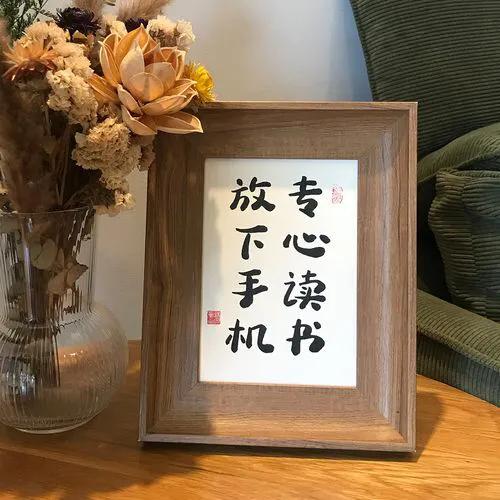 专心读书
放下手机